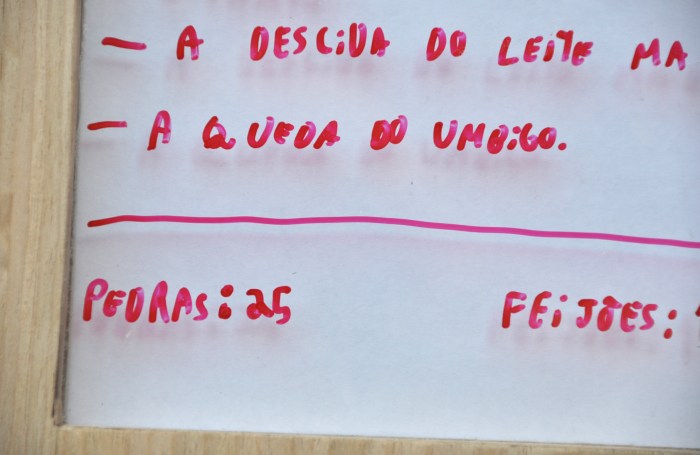 — A DESCIDA DO LEITE MA
— A QUEDA DO UMBIGO.
PEDRAS: 25
FEIJÕES: